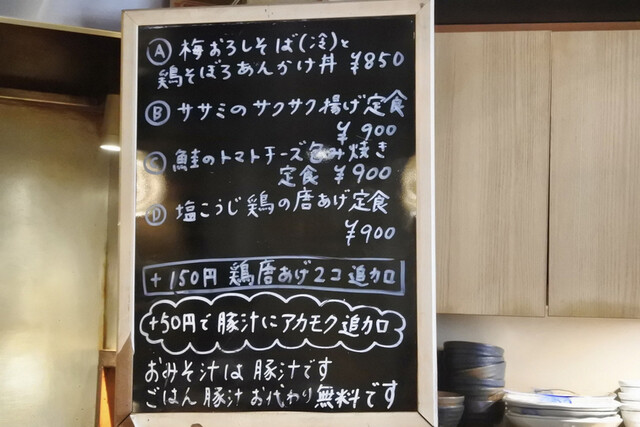 Ⓐ 梅おろしそば(冷)と
鶏そぼろあんかけ丼 ¥850
Ⓑ ササミのサクサク揚げ定食
¥900
Ⓒ 鮭のトマトチーズ包み焼き
定食 ¥900
Ⓓ 塩こうじ鶏の唐あげ定食
¥900
+150円 鶏唐あげ2コ追加
+50円で豚汁にアカモク追加
おみそ汁は豚汁です
ごはん豚汁お代わり無料です